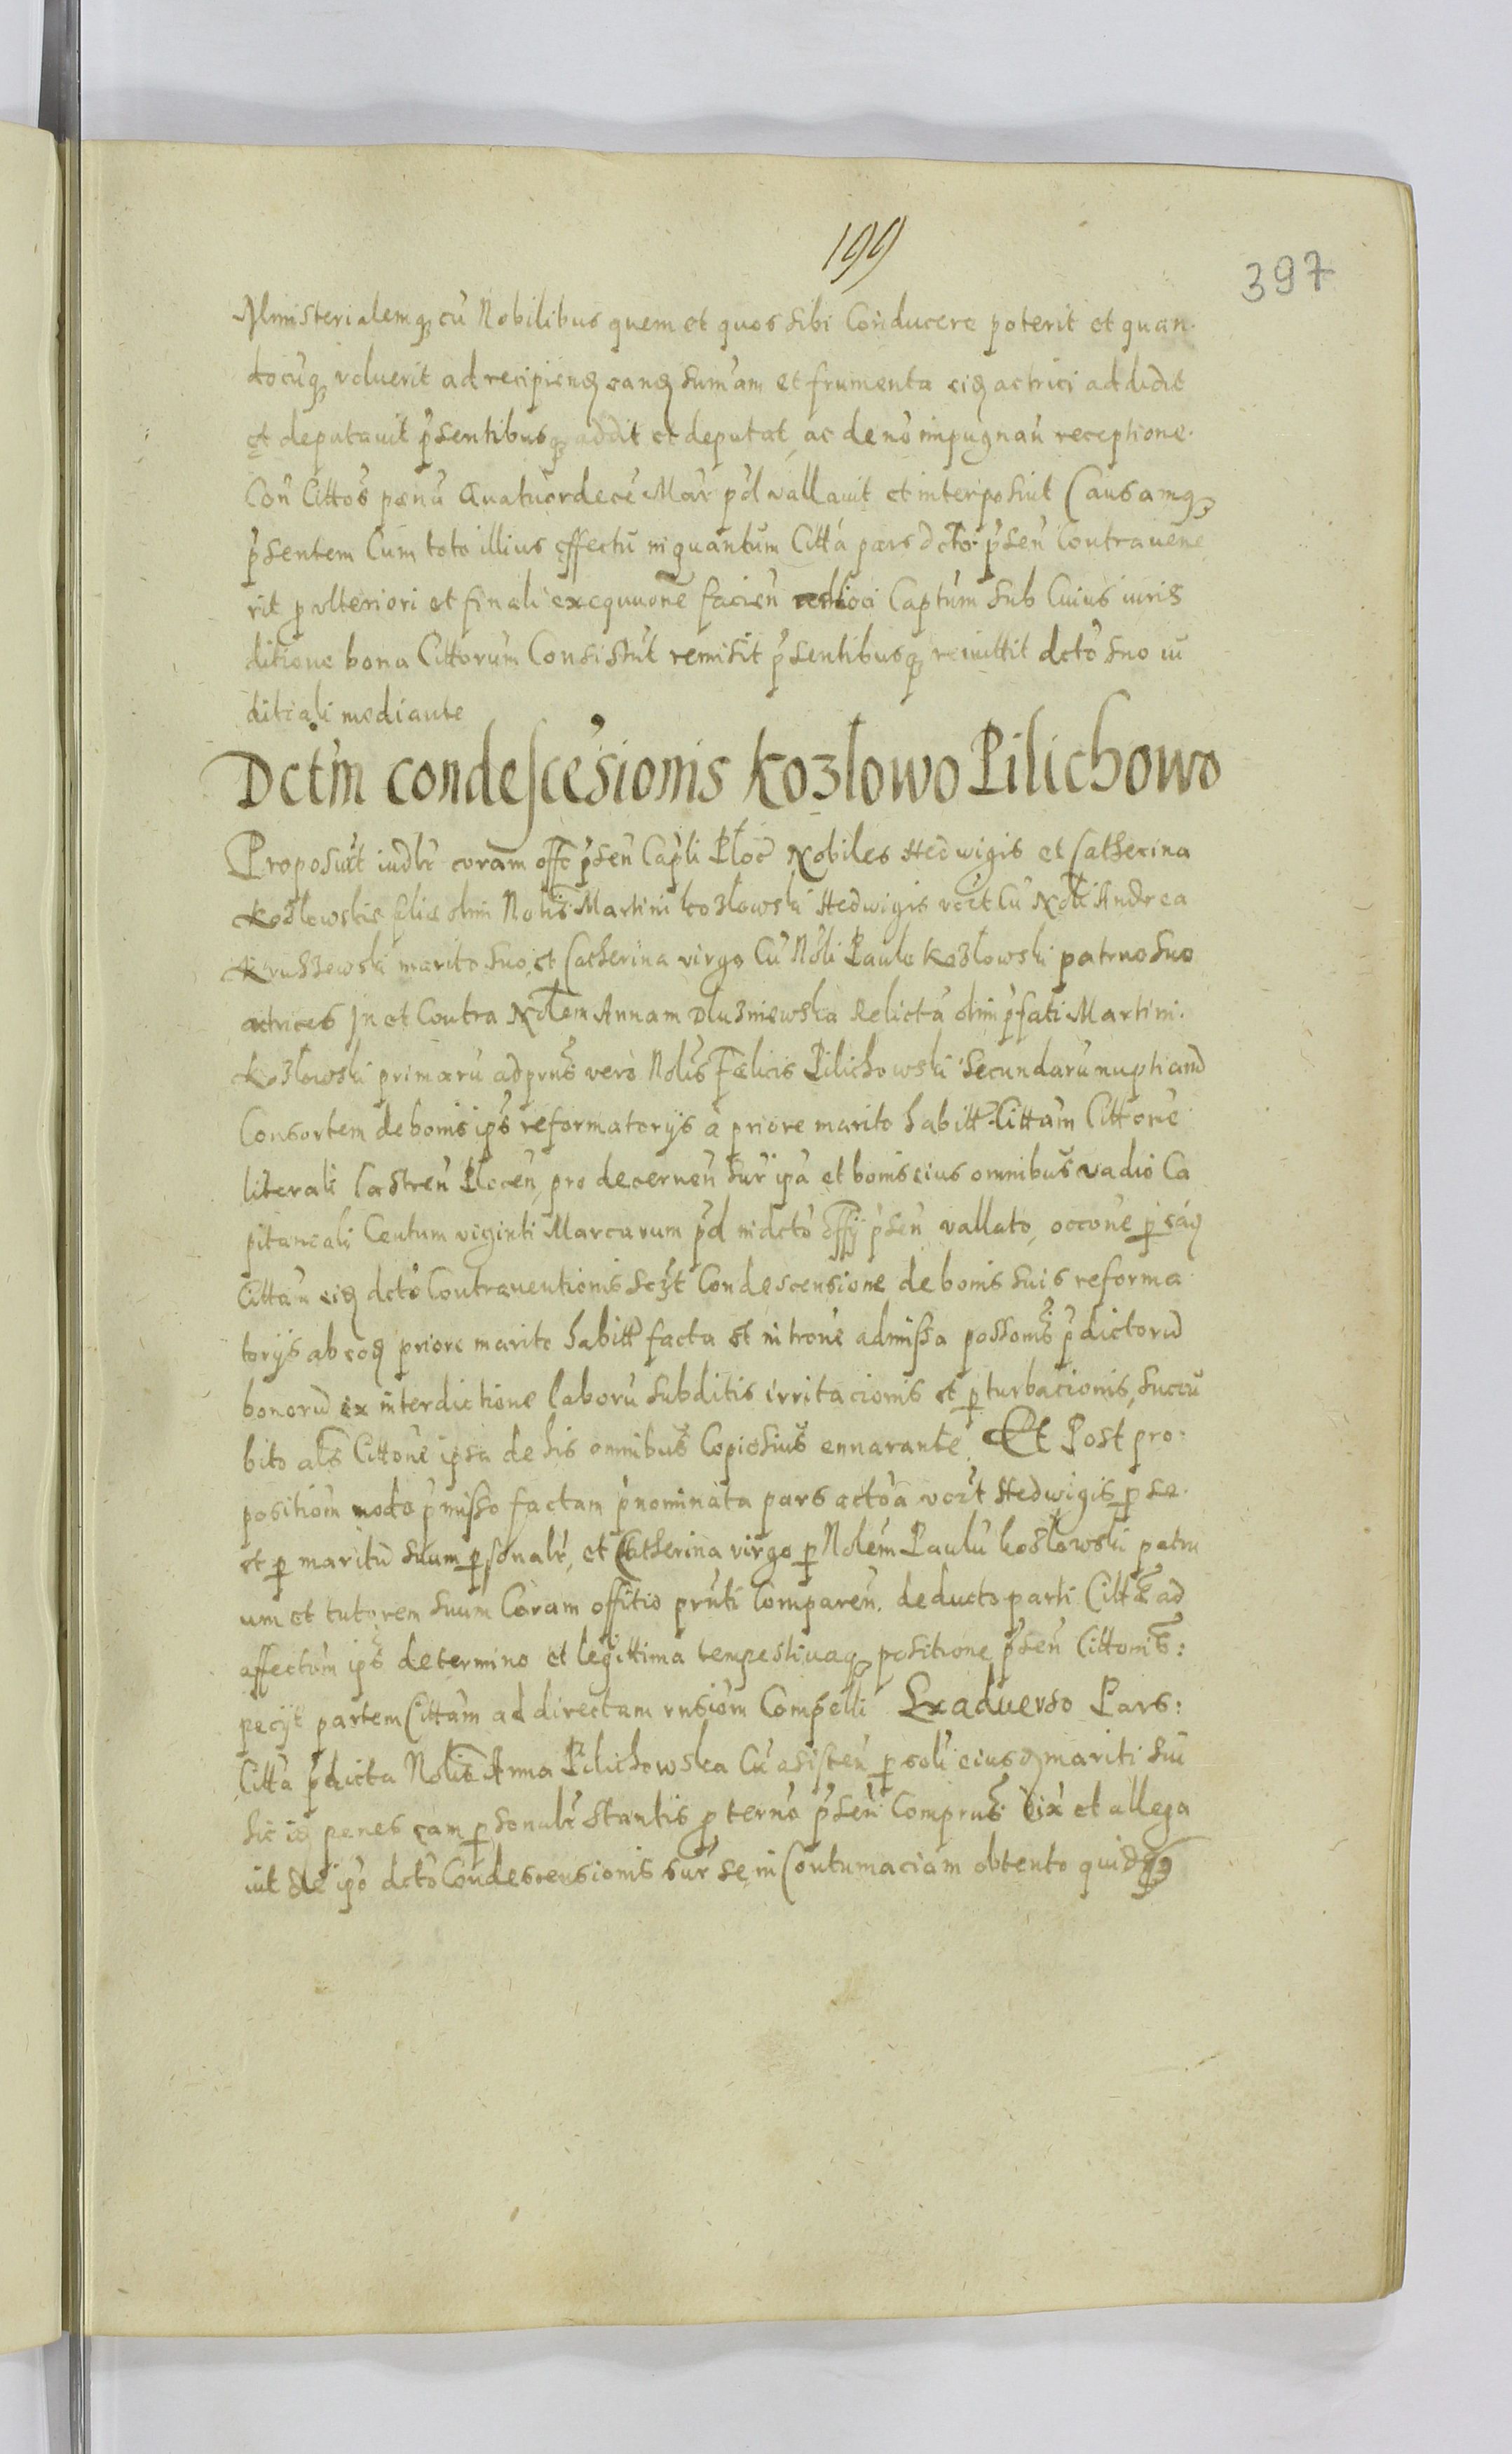 199
397
Ministerialemq3 cū Nobilibus quem et quos sibi Conducere poterit et quan
docūq3 voluerit ad recipien eanq sum̄am et frumenta eiq actrici addidit
et deputauit p̄sentibusq3 addit et deputat, ac de nō impugnan̄ receptione.
Con̄ Cittos̄ pœnā Quatuordecē Mar̄ pd̄ vallauit et interposiuit Causamq3
p̄sentem Cum toto illius effectū in quantum Citta pars dcto p̄sen̄ Contrauene
rit p vlteriori et finali exequuone facien̄ Captūm sub Cuius iuris
ditione bona Cittorum Consistūt remisit p̄sentibusq3 remittit dcto suo iu
ditiali mediante
Dctm̄ condescēsionis Kozlowo Pilichowo
Proposuēt iudlr coram offo p̄sen̄ Capli Ploc̄ Nobiles Hedwigis et Catherina
Kozlowskie filie olim Nolis Martini Kozlowski Hedwigis vcz̄t Cū Noli Andrea
Kruszewski marito suo, et Catherina virgo Cū Noli Paulo Kozlowski patruo suo
actrices In et Contra Nolem Annam Dluzniewska Relictā olim p̄fati Martini.
Kozlowski primarū ad prn̄s vero Nolis Fœlicis Pilichowski secundarū nuptiarū
Consortem de bonis ips̄ reformatorijs a priore marito habitt Cittam̄ Cittone
literali Castren̄ Plocen̄, pro decernen̄ sur̄ ipā et bonis eius omnibus vadio Ca
pitaneali Centum viginti Marcarum pd̄ in dcto offij p̄sen̄ vallato, occone p eāq
Cittan̄ eiq dcto Contrauentionis scz̄t Condescensione de bonis suis reforma
torijs ab eoq priore marito habitt facta et introne admissa possonis̄ p̄dictorū
bonorū ex interdictione laborū subditis irritacionis et p turbacionis, succū
bito als̄ Cittone ipsa de his omnibus Copiosius ennarante. Et Post pro:
positiom̄ modo p̄misso factam p̄nominata pars actōa vcz̄t Hedwigis p se.
et p maritū suum p sonalr̄, et Catherina virgo p Nolem̄ Paulū Kozlowski patru
um et tutorem suum Coram offitio prn̄ti Comparen̄. deducto parti Cittæ ad
affectūm ips̄ de termino et legittima tempestiuaq3 positione p̄sen̄ Cittonis̄:
pecijt partem Cittam̄ ad directam rnsiom̄ Compelli Ex aduerso Pars:
Citta p̄dicta Nolis Anna Pilichowska Cū asisten̄ p sōli eiusq mariti sui
hic iq penes eam p sonalr̄ stantis p terno p̄sen̄ Comprns̄ dix̄ et allega
uit de ipō dcto Condescensionis sur̄ se in Contumaciam obtento